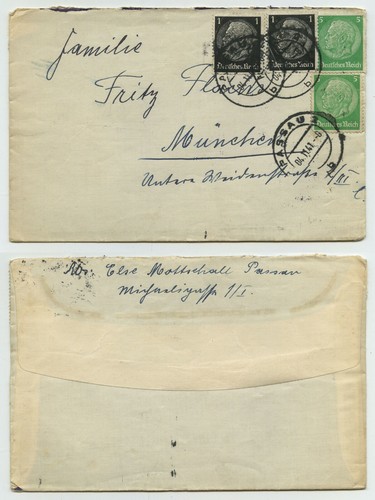 1 1 5 5
Deutsches Reich Deutsches Reich Deutsches Reich
5 5
Deutsches Reich
Familie
Fritz
München
PASSAU 2
04.11.41
b
Untere Weidenstraße
Else Mottschall Passau
Michaeligasse 1/I.